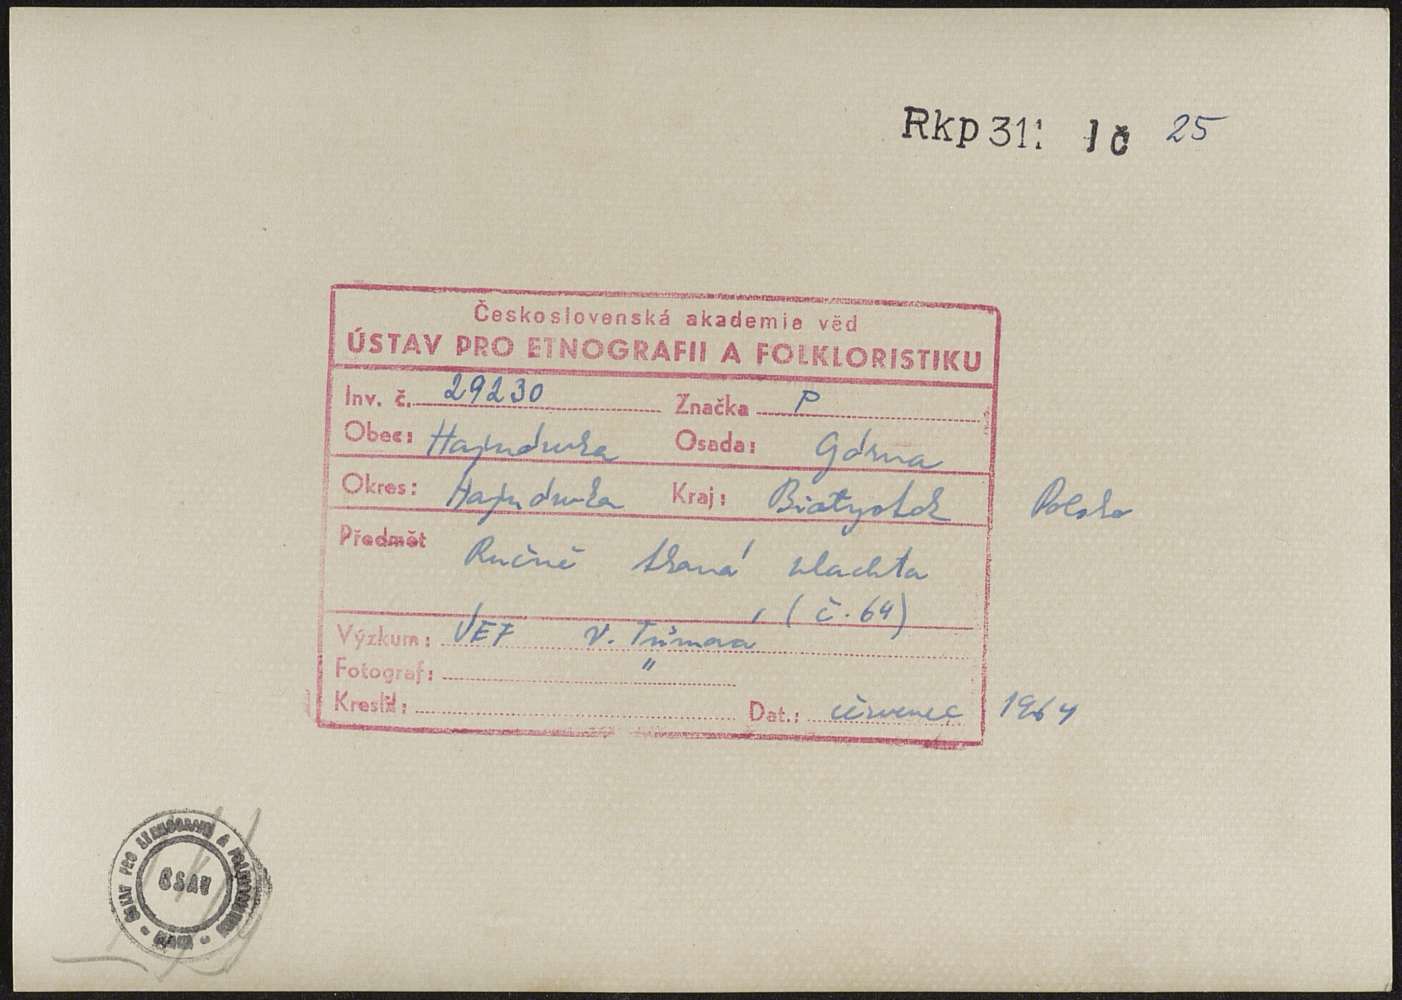 Rkp 311 1 č 25
Československá akademie věd
ÚSTAV PRO ETNOGRAFII A FOLKLORISTIKU
Inv. č. 29230 Značka P
Obec: Hajnówka Osada: Górna
Okres: Hajnówka Kraj: Białystok Polsko
Předmět Ručně tkaná plachta
(č. 64)
Výzkum: ÚEF V. Tůmová
Fotograf: "
Kreslil: Dat.: červenec 1964
ÚSTAV PRO ETNOGRAFII A FOLKLORISTIKU
ČSAV